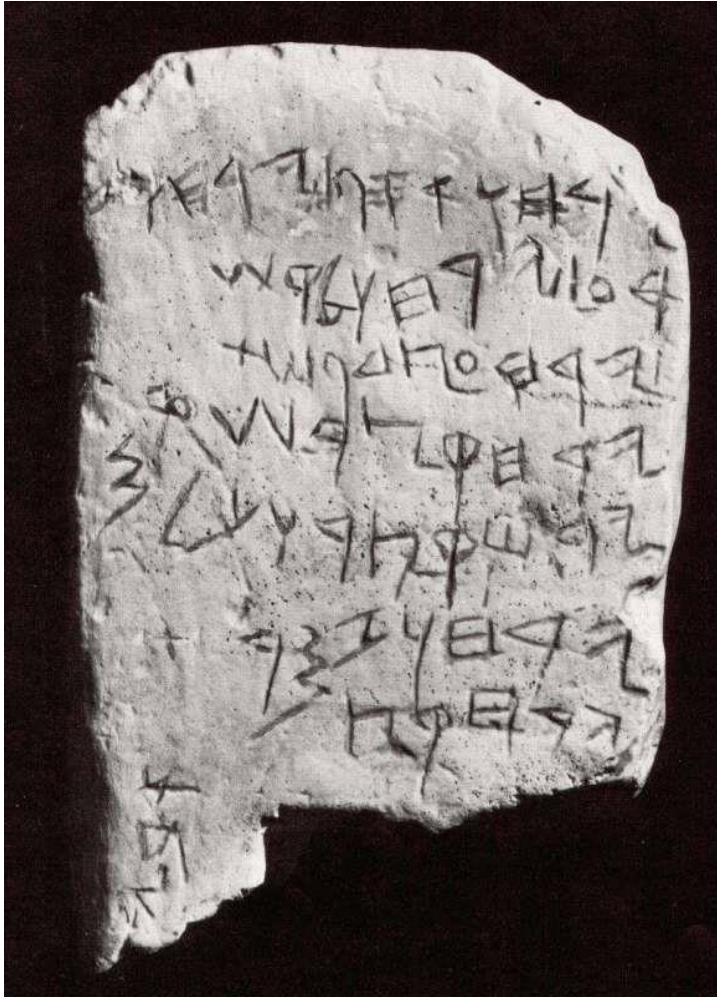 𐤉𐤓𐤇𐤅𐤀𐤎𐤐𐤉𐤓𐤇𐤅𐤆
𐤓𐤏𐤉𐤓𐤇𐤅𐤋𐤒𐤔
𐤉𐤓𐤇𐤏𐤑𐤃𐤐𐤔𐤕
𐤉𐤓𐤇𐤒𐤑𐤓𐤔𐤏𐤓𐤌
𐤉𐤓𐤇𐤒𐤑𐤓𐤅𐤊𐤋
𐤉𐤓𐤇𐤅𐤆𐤌𐤓
𐤉𐤓𐤇𐤒𐤑
𐤀𐤁𐤉